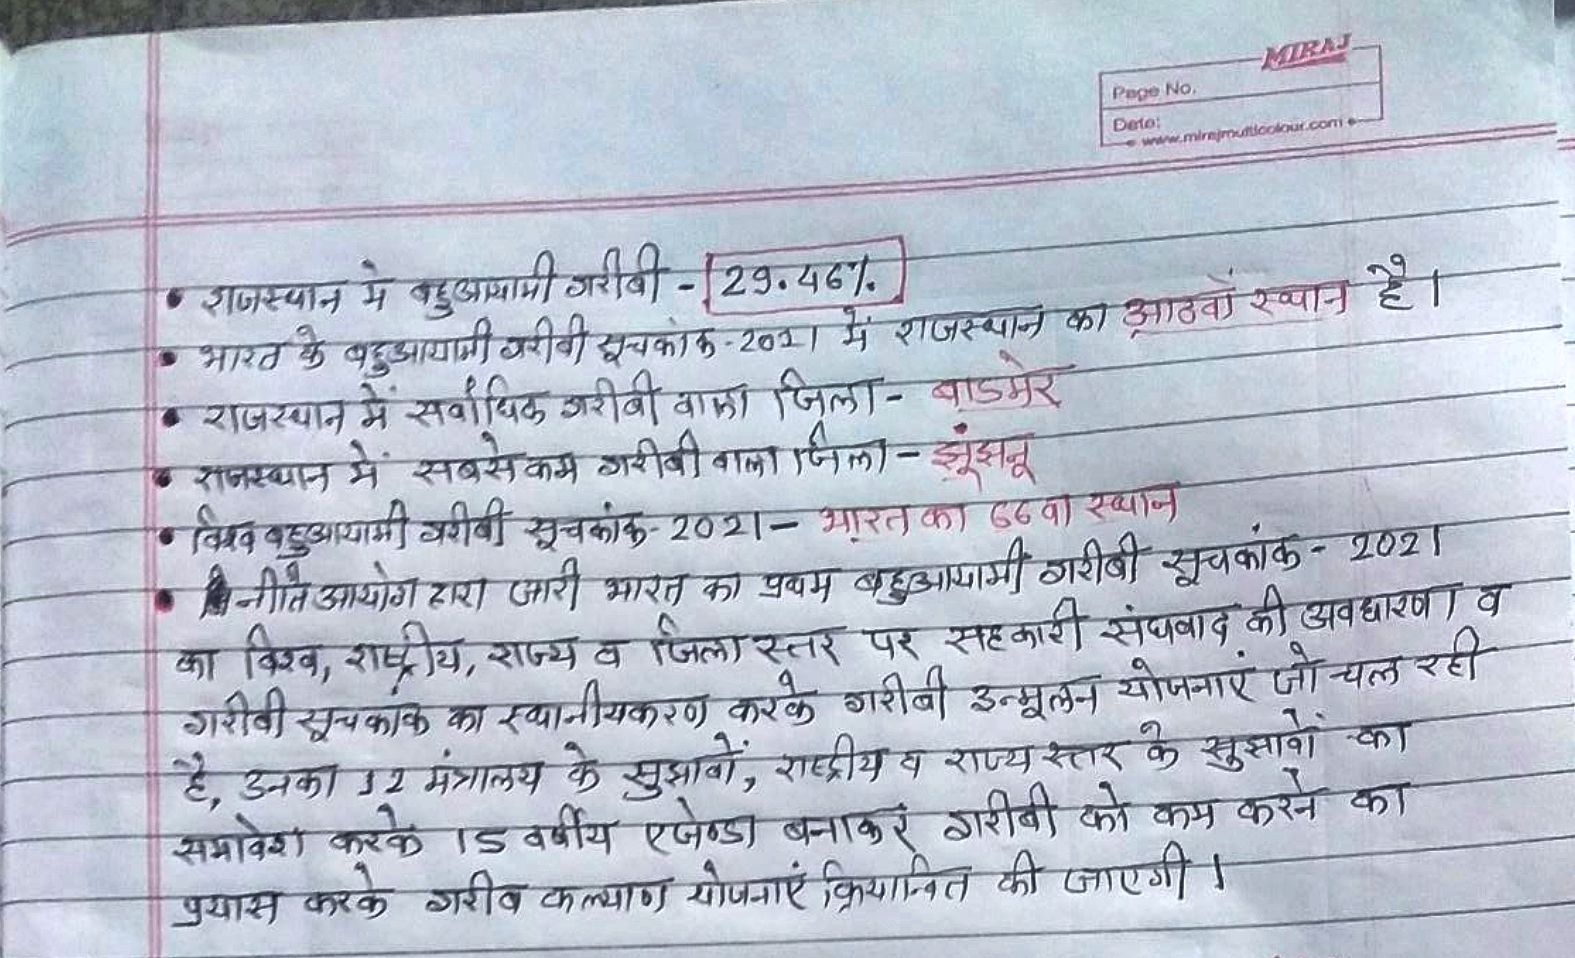 MIRAJ
Page No.
Date:
www.mirajmulticolour.com
• राजस्थान में बहुआयामी गरीबी - 29.46%
• भारत के बहुआयामी गरीबी सूचकांक-2021 में राजस्थान का आठवां स्थान है।
• राजस्थान में सर्वाधिक गरीबी वाला जिला - बाडमेर
• राजस्थान में सबसे कम गरीबी वाला जिला - झूंझनू
• विश्व बहुआयामी गरीबी सूचकांक-2021 - भारत का 66वा स्थान
• नीति आयोग द्वारा जारी भारत का प्रथम बहुआयामी गरीबी सूचकांक - 2021
का विश्व, राष्ट्रीय, राज्य व जिला स्तर पर सहकारी संघवाद की अवधारणा व
गरीबी सूचकांक का स्थानीयकरण करके गरीबी उन्मूलन योजनाएं जो चल रही
है, उनका 12 मंत्रालय के सुझावों, राष्ट्रीय व राज्य स्तर के सुझावों का
समावेश करके 15 वर्षीय एजेण्डा बनाकर गरीबी को कम करने का
प्रयास करके गरीब कल्याण योजनाएं क्रियान्वित की जाएगी।